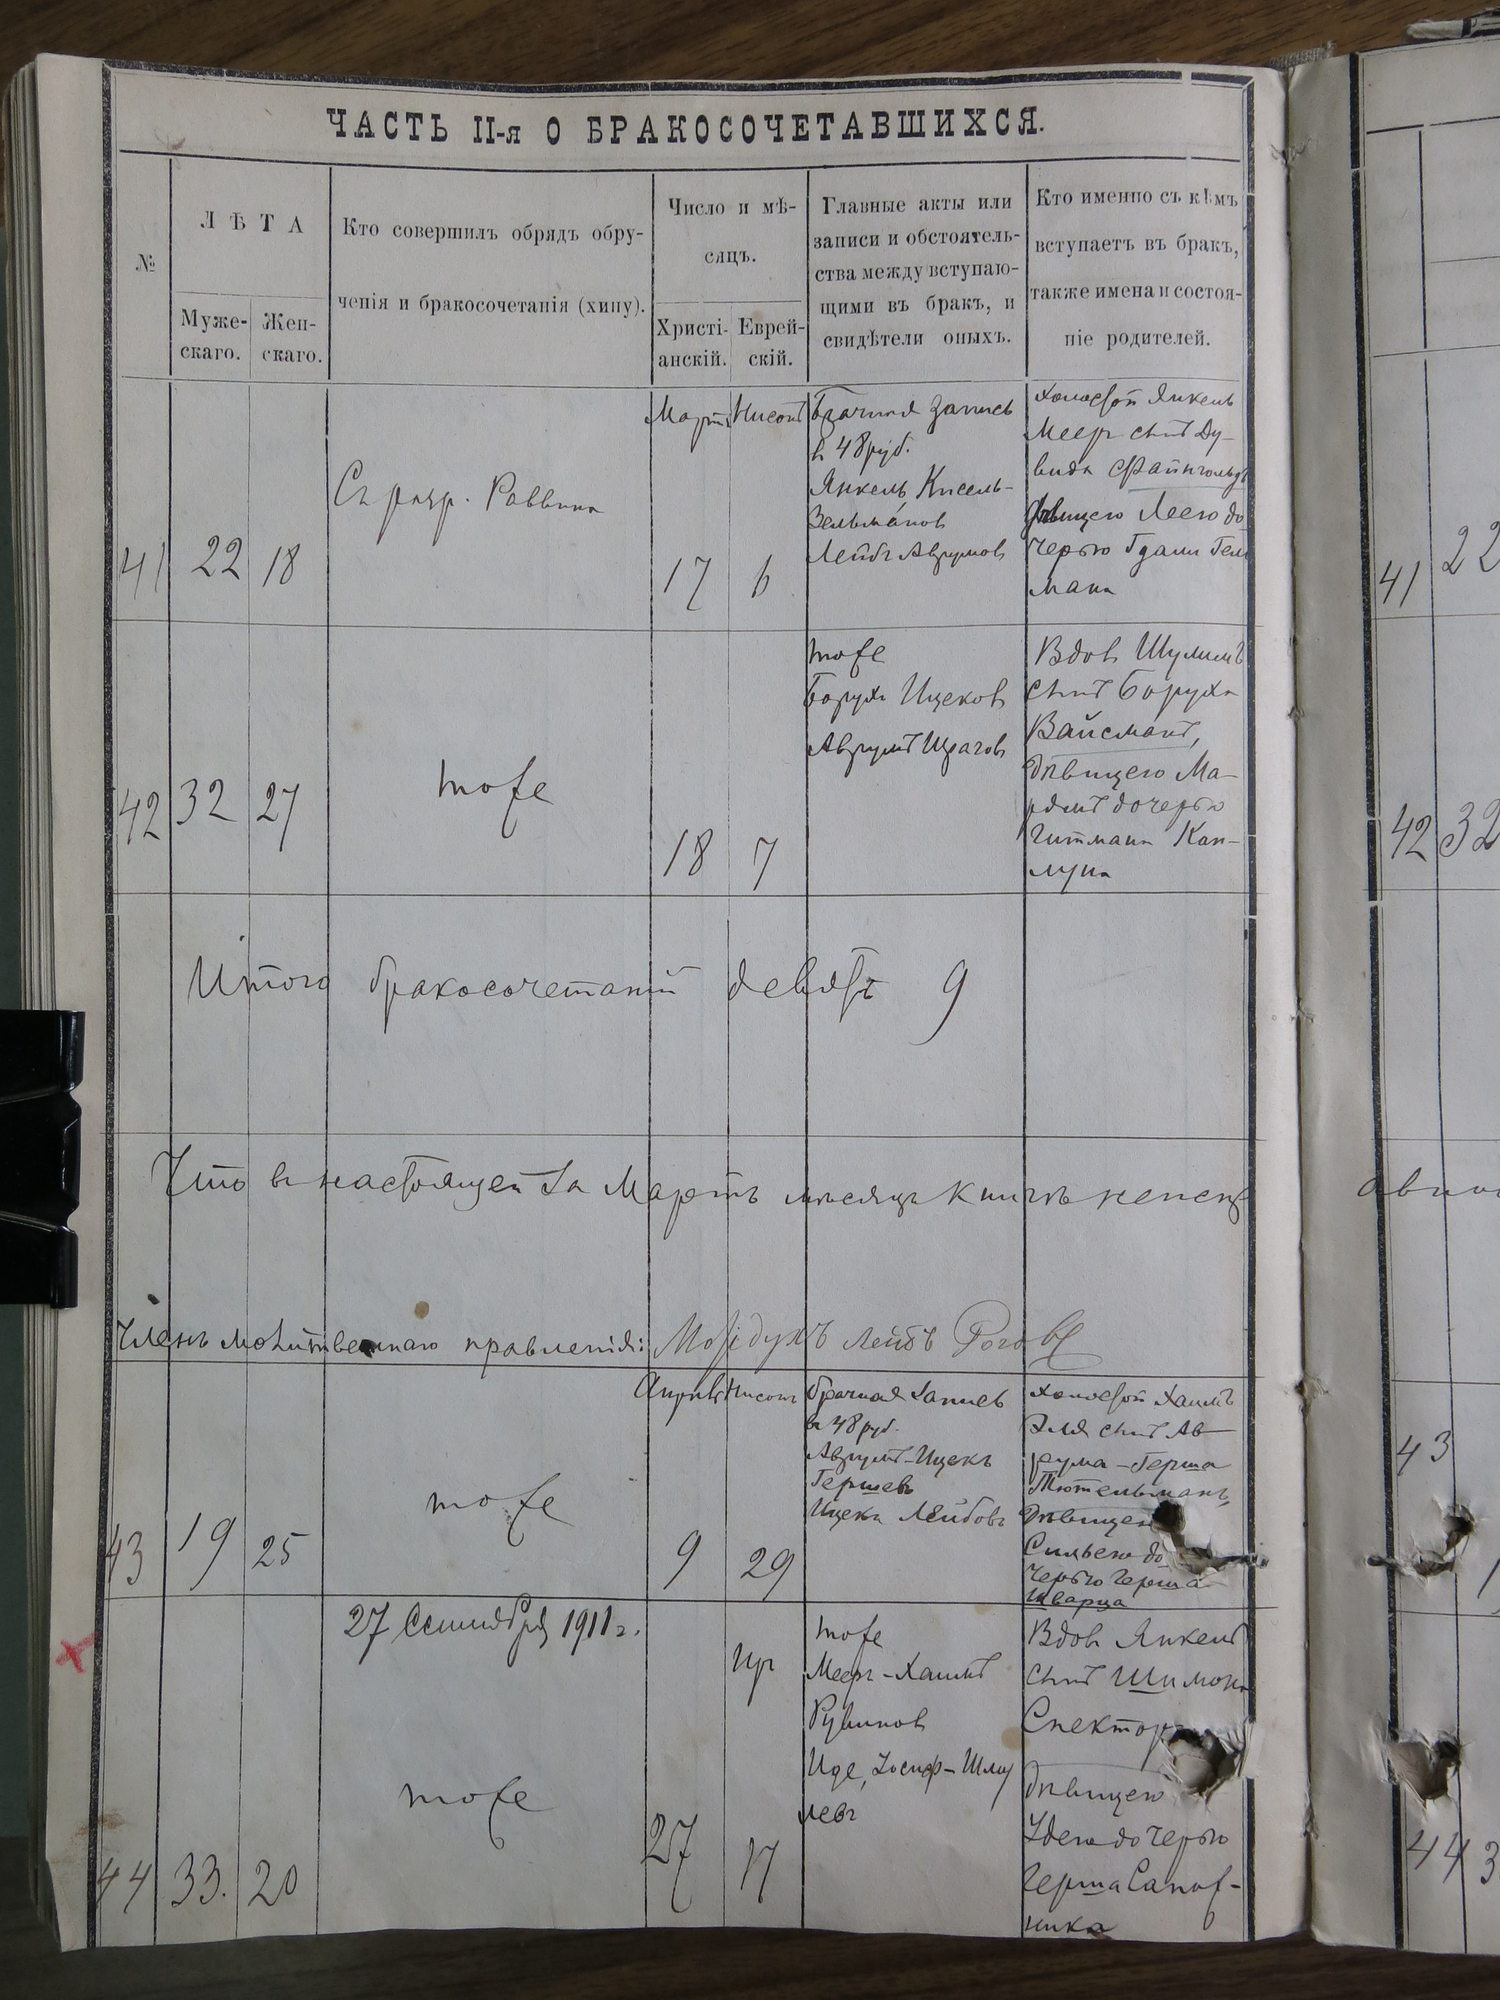 ЧАСТЬ II-я О БРАКОСОЧЕТАВШИХСЯ.
№
ЛѢТА
Муже-
скаго.
Жен-
скаго.
Кто совершилъ обрядъ обру-
ченія и бракосочетанія (хипу).
Число и мѣ-
сяцъ.
Христі-
анскій.
Еврей-
скій.
Главные акты или
записи и обстоятель-
ства между вступаю-
щими въ бракъ, и
свидѣтели оныхъ.
Кто именно съ кѣмъ
вступаетъ въ бракъ,
также имена и состоя-
ніе родителей.
41
22
18
Съ разр. Раввина
Мартъ
17
Нисонъ
6
Брачная запись
в 48 руб.
Янкель Кисель-
Зельманов
Лейбъ Аврумов
Холостой Янкель
Меер сынъ Ду-
вида Файнгольдъ
дѣвицею Леею до
черью
мана
42
32
27
тоже
18
7
тоже
Борухъ Ицеков
Аврумъ Шрагов
Вдов Шулимъ
сынъ Боруха
Вайсманъ,
дѣвицею Ма-
рямъ дочерью
Гитмана Кап-
луна
Итого бракосочетаній девять 9
Что в настоящей за Мартъ мѣсяцъ книгѣ
Членъ молитвеннаго правленія: Мордухъ Лейбъ Рогов
43
19
25
тоже
Апрѣль
9
Нисонъ
29
Брачная запись
в 48 руб.
Аврумъ-Ицекъ
Гершевъ
Ицекъ Лейбовъ
Холостой Хаимъ
Эля сынъ Ав-
рума-Герша
Тютельманъ,
дѣвицею
до
черью Герша
Шварца
44
33.
20
27 Сентября 1911 г.
тоже
27
Ир
17
тоже
Меер-Хаимъ
Рувинов
Иде, Іосиф-Шму
левъ
Вдов Янкель
сынъ Шимона
Спектор
дѣвицею
дочерью
Герша Сапож-
ника
41
22
42
32
43
44
3